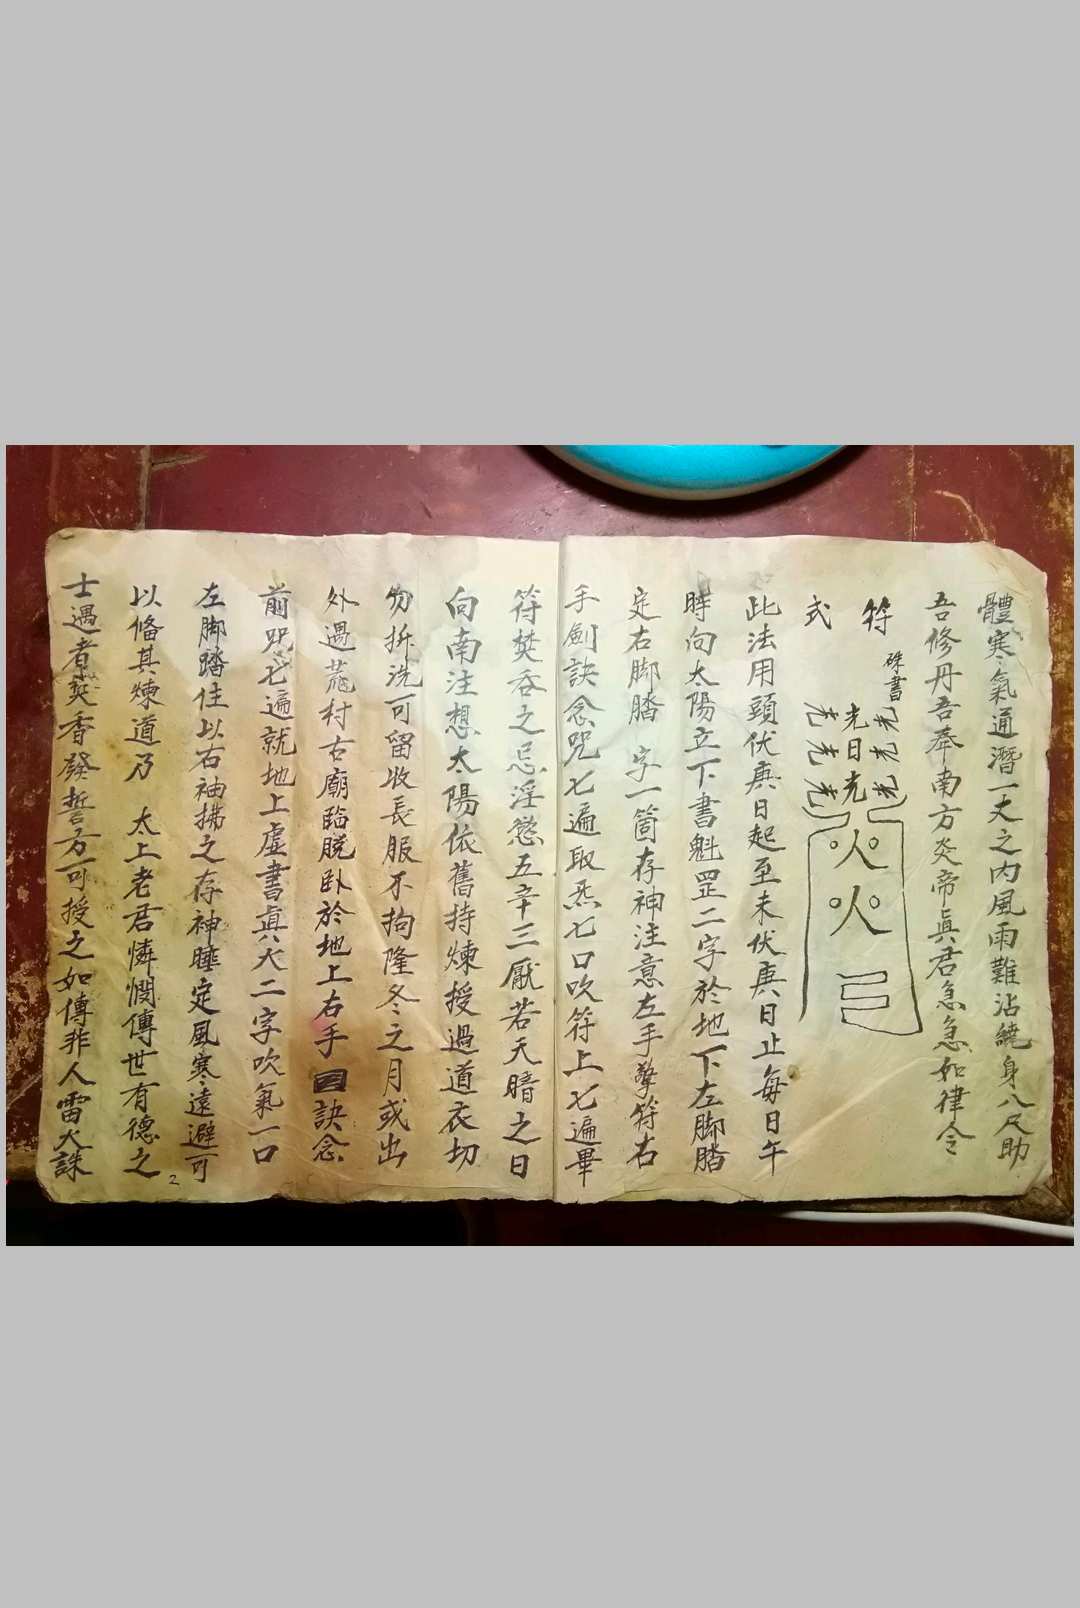 體寒氣通潛一丈之内風雨難沾繞身八尺助
吾修丹吾奉南方炎帝眞君急急如律令
符
式
硃書
光光光
光日光
光光光
火火
此法用頭伏庚日起至末伏庚日止每日午
時向太陽立下書魁罡二字於地下左脚踏
定右脚踏 字一箇存神注意左手擎符右
手劍訣念咒七遍取炁七口吹符上七遍畢
符焚吞之忌淫慾五辛三厭若天暗之日
向南注想太陽依舊持煉授過道衣切
勿拆洗可留收長服不拘隆冬之月或出
外遇荒村古廟臨脱卧於地上右手訣念
前咒七遍就地上虚書眞火二字吹氣一口
左脚踏住以右袖拂之存神睡定風寒遠避可
以僃其煉道乃 太上老君憐憫傳世有德之
士遇者焚香發誓方可授之如傳非人雷火誅
2